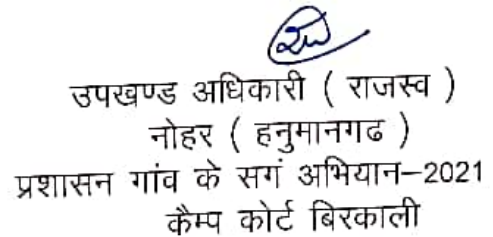 उपखण्ड अधिकारी ( राजस्व )
नोहर ( हनुमानगढ )
प्रशासन गांव के सगं अभियान–2021
कैम्प कोर्ट बिरकाली